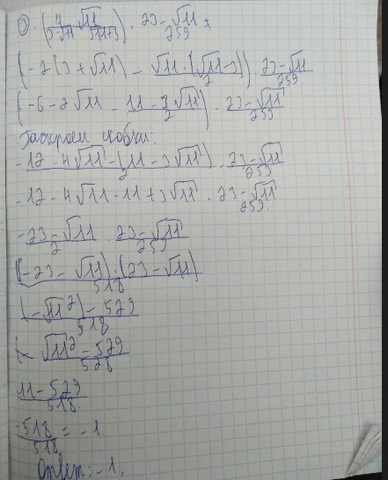 (4/(3-√11) - √11/(√11+3)) · 23-√11/259 =
(-2(3+√11) - √11·(√11-3)/2) · 23-√11/259
(-6-2√11 - 11-3√11/2) · 23-√11/259
Раскроем скобки:
-12-4√11-(11-3√11)/2 · 23-√11/259
-12-4√11-11+3√11 · 23-√11/259
-23-√11/2 · 23-√11/259
(-23-√11)·(23-√11)/518
(-√11²)-529/518
√11²-529/528
11-529/518
-518/518 = -1
Ответ: -1.